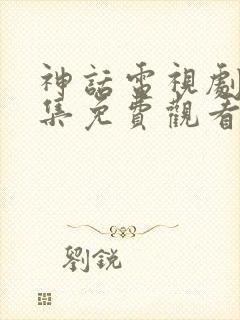 神話電視劇
集免費觀看
劉銳